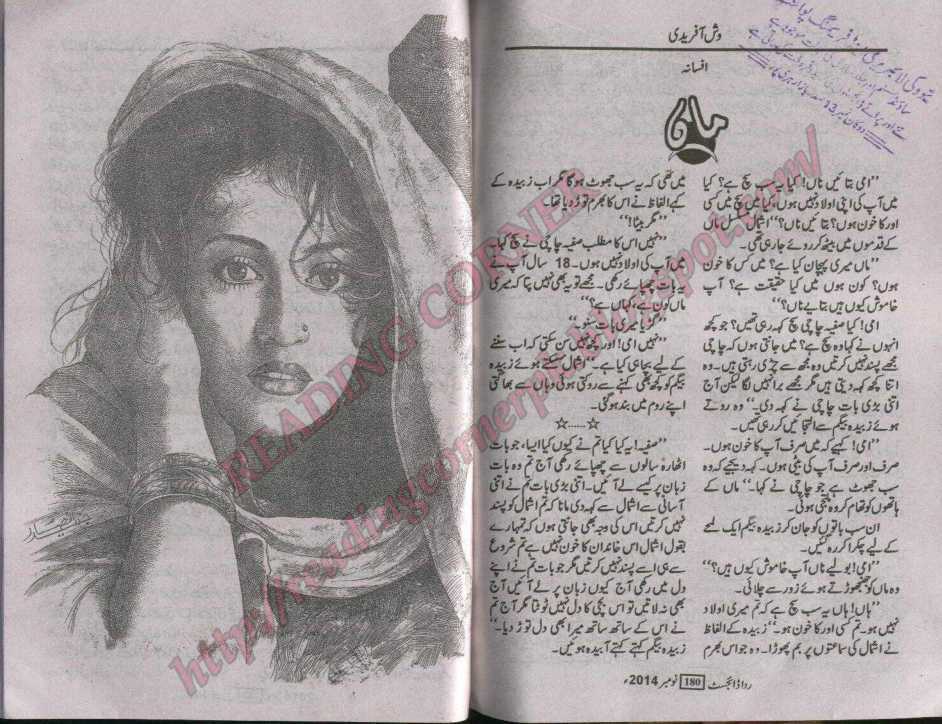 وش آفریدی
افسانہ
مان
”امی بتائیں ناں! کیا یہ سب سچ ہے؟ کیا
میں آپ کی اپنی اولاد نہیں ہوں، کیا میں سچ میں کسی
اور کا خون ہوں؟ بتائیں ناں؟“ اشمال مسلسل ماں
کے قدموں میں بیٹھ کر روئے جا رہی تھی۔
”ماں میری پہچان کیا ہے؟ میں کس کا خون
ہوں؟ کون ہوں میں کیا حقیقت ہے؟ آپ
خاموش کیوں ہیں بتایے ناں؟“
امی! کیا صفیہ چاچی سچ کہہ رہی تھیں؟ جو کچھ
انہوں نے کہا وہ سچ ہے؟ میں جانتی ہوں کہ چاچی
مجھے پسند نہیں کرتیں وہ مجھ سے چڑی رہتی ہیں۔ وہ
اتنا کچھ کہہ دیتی ہیں مگر مجھے برا نہیں لگا لیکن آج
اتنی بڑی بات چاچی نے کہہ دی۔“ وہ روتے
ہوئے زبیدہ بیگم سے التجائیں کر رہی تھیں۔
”امی! کہیے کہ میں صرف آپ کا خون ہوں۔
صرف اور صرف آپ کی بیٹی ہوں۔ کہہ دیجیے کہ وہ
سب جھوٹ ہے جو چاچی نے کہا۔“ ماں کے
ہاتھوں کو تھام کر وہ ہوئی۔
ان سب باتوں کو جان کر زبیدہ بیگم ایک لمحے
کے لیے چکرا کر رہ گئیں۔
”امی! بولیے ناں آپ خاموش کیوں ہیں؟“
وہ ماں کو جھنجھوڑتے ہوئے زور سے چلائی۔
”ہاں! ہاں یہ سب سچ ہے کہ تم میری اولاد
نہیں ہو۔ تم کسی اور کا خون ہو۔“ زبیدہ کے الفاظ
نے اشمال کی سماعتوں پر بم پھوڑا۔ وہ جو اس بھرم
میں تھی کہ یہ سب جھوٹ ہوگا مگر اب زبیدہ کے
کہے الفاظ نے اس کا بھرم توڑ دیا تھا۔
”مگر بیٹا!“
”نہیں اس کا مطلب صفیہ چاچی نے سچ کہا۔
میں آپ کی اولاد نہیں ہوں۔ 18 سال آپ نے
یہ بات چھپائے رکھی۔ مجھے تو یہ بھی نہیں پتا کہ میری
ماں کون ہے، کہاں ہے؟“
”گڑیا میری بات سنو۔“
”نہیں امی! اور کچھ نہیں سن سکتی کہ اب سننے
کے لیے بچا ہی کیا ہے۔“ اشمال سسکتے ہوئے زبیدہ
بیگم کو کچھ بھی کہنے سے روکتی ہوئی وہاں سے بھاگتی
اپنے روم میں بند ہوگئی۔
☆......☆
”صفیہ! یہ کیا کیا تم نے کیوں کیا ایسا، جو بات
اٹھارہ سالوں سے چھپائے رکھی آج تم وہ بات
زبان پر کیسے لے آئیں۔ اتنی بڑی بات تم نے اتنی
آسانی سے اشمال سے کہہ دی مانا کہ تم اشمال کو پسند
نہیں کرتیں اس کی وجہ بھی جانتی ہوں کہ تمہارے
بقول اشمال اس خاندان کا خون نہیں ہے تم شروع
سے ہی اسے پسند نہیں کرتیں مگر جو بات تم نے اپنے
دل میں رکھی آج کیوں زبان پر لے آئیں آج
بھی نہ لاتیں تو اس بچی کا دل نہیں ٹوٹتا مگر آج تم
نے اس کے ساتھ ساتھ میرا بھی دل توڑ دیا۔“
زبیدہ بیگم کہتے کہتے آبدیدہ ہوئیں۔
ردا ڈائجسٹ 180 نومبر 2014ء
READING CORNER
http://readingcornerpk.blogspot.com/